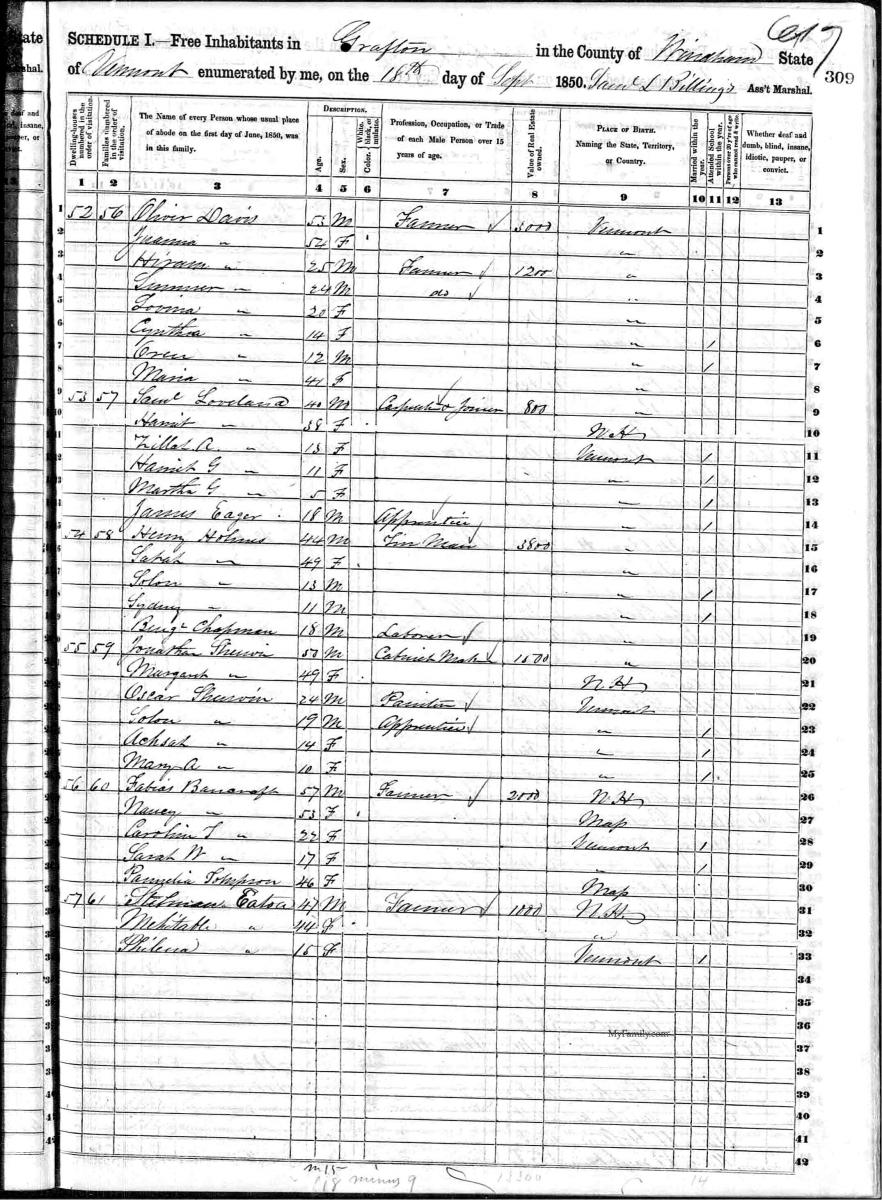 State
rshal.
617
SCHEDULE I.—Free Inhabitants in Grafton in the County of Windham State
309
of Vermont enumerated by me, on the 18th day of Sept 1850. Saml L Billings Ass't Marshal.
Dwelling-houses numbered in the order of visitation.
Families numbered in the order of visitation.
The Name of every Person whose usual place of abode on the first day of June, 1850, was in this family.
DESCRIPTION.
Age.
Sex.
Color. White, black, or mulatto.
Profession, Occupation, or Trade of each Male Person over 15 years of age.
Value of Real Estate owned.
PLACE OF BIRTH. Naming the State, Territory, or Country.
Married within the year.
Attended School within the year.
Persons over 20 y'rs of age who cannot read & write.
Whether deaf and dumb, blind, insane, idiotic, pauper, or convict.
1 2 3 4 5 6 7 8 9 10 11 12 13
1 52 56 Oliver Davis 53 M Farmer 3000 Vermont 1
2 Juanna " 54 F " 2
3 Hiram " 25 M Farmer 1200 " 3
4 Sumner " 24 M do " 4
5 Lovina " 20 F " 5
6 Cynthia " 14 F " / 6
7 Oren " 12 M " / 7
8 Maria " 41 F " 8
9 53 57 Saml Loveland 40 M Carpenter & Joiner 800 " 9
10 Harriet " 38 F N H 10
11 Zillah A " 13 F Vermont / 11
12 Harriet G " 11 F " / 12
13 Martha G " 5 F " / 13
14 James Eager 18 M Apprentice " / 14
15 54 58 Henry Holmes 44 M Tin Man 3800 " 15
16 Sarah " 49 F " 16
17 Solon " 13 M " / 17
18 Sydney " 11 M " / 18
19 Benj Chapman 18 M Laborer " 19
20 55 59 Jonathan Sherwin 50 M Cabinet Mak 1500 " 20
21 Margaret " 49 F N.H 21
22 Oscar Sherwin 24 M Painter Vermont 22
23 Solon " 19 M Apprentice " / 23
24 Achsah " 14 F " / 24
25 Mary A " 10 F " / 25
26 56 60 Tabias Bancroft 57 M Farmer 2000 N H 26
27 Nancy " 53 F Mass 27
28 Caroline T " 22 F Vermont / 28
29 Sarah W " 17 F " / 29
30 Pamelia Tompson 46 F Mass 30
31 57 61 Stelman Eaton 47 M Farmer 1000 N.H. 31
32 Mehitable " 44 F " 32
33 Philena " 15 F Vermont / 33
34
35
36
MyFamily.com
37
38
39
40
41
42
m 15
18 minus 9 13300 14